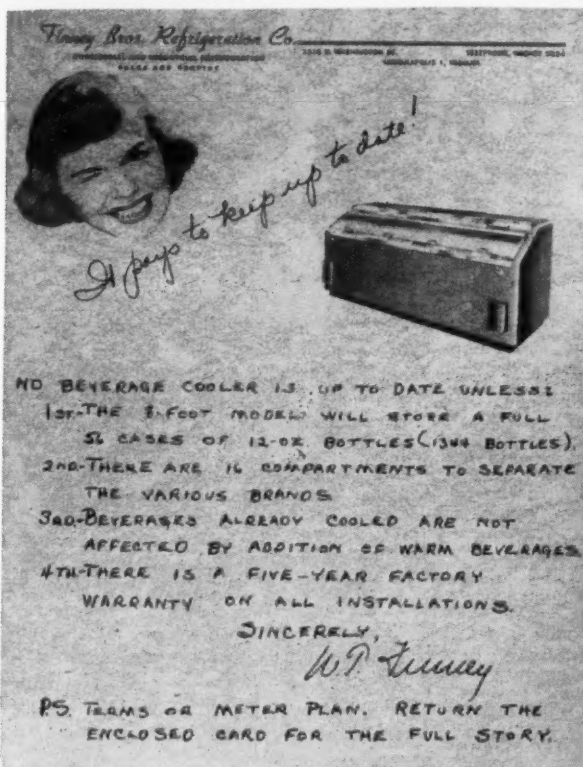 Finney Bros. Refrigeration Co.
COMMERCIAL AND INDUSTRIAL REFRIGERATION
SALES AND SERVICE
WASHINGTON
TELEPHONE,
It pays to keep up to date!
NO BEVERAGE COOLER IS UP TO DATE UNLESS:
1ST-THE 8-FOOT MODEL WILL STORE A FULL
56 CASES OF 12-OZ BOTTLES (1344 BOTTLES).
2ND-THERE ARE 16 COMPARTMENTS TO SEPARATE
THE VARIOUS BRANDS
3RD-BEVERAGES ALREADY COOLED ARE NOT
AFFECTED BY ADDITION OF WARM BEVERAGES.
4TH-THERE IS A FIVE-YEAR FACTORY
WARRANTY ON ALL INSTALLATIONS.
SINCERELY,
W P Finney
P.S. TERMS OR METER PLAN. RETURN THE
ENCLOSED CARD FOR THE FULL STORY.